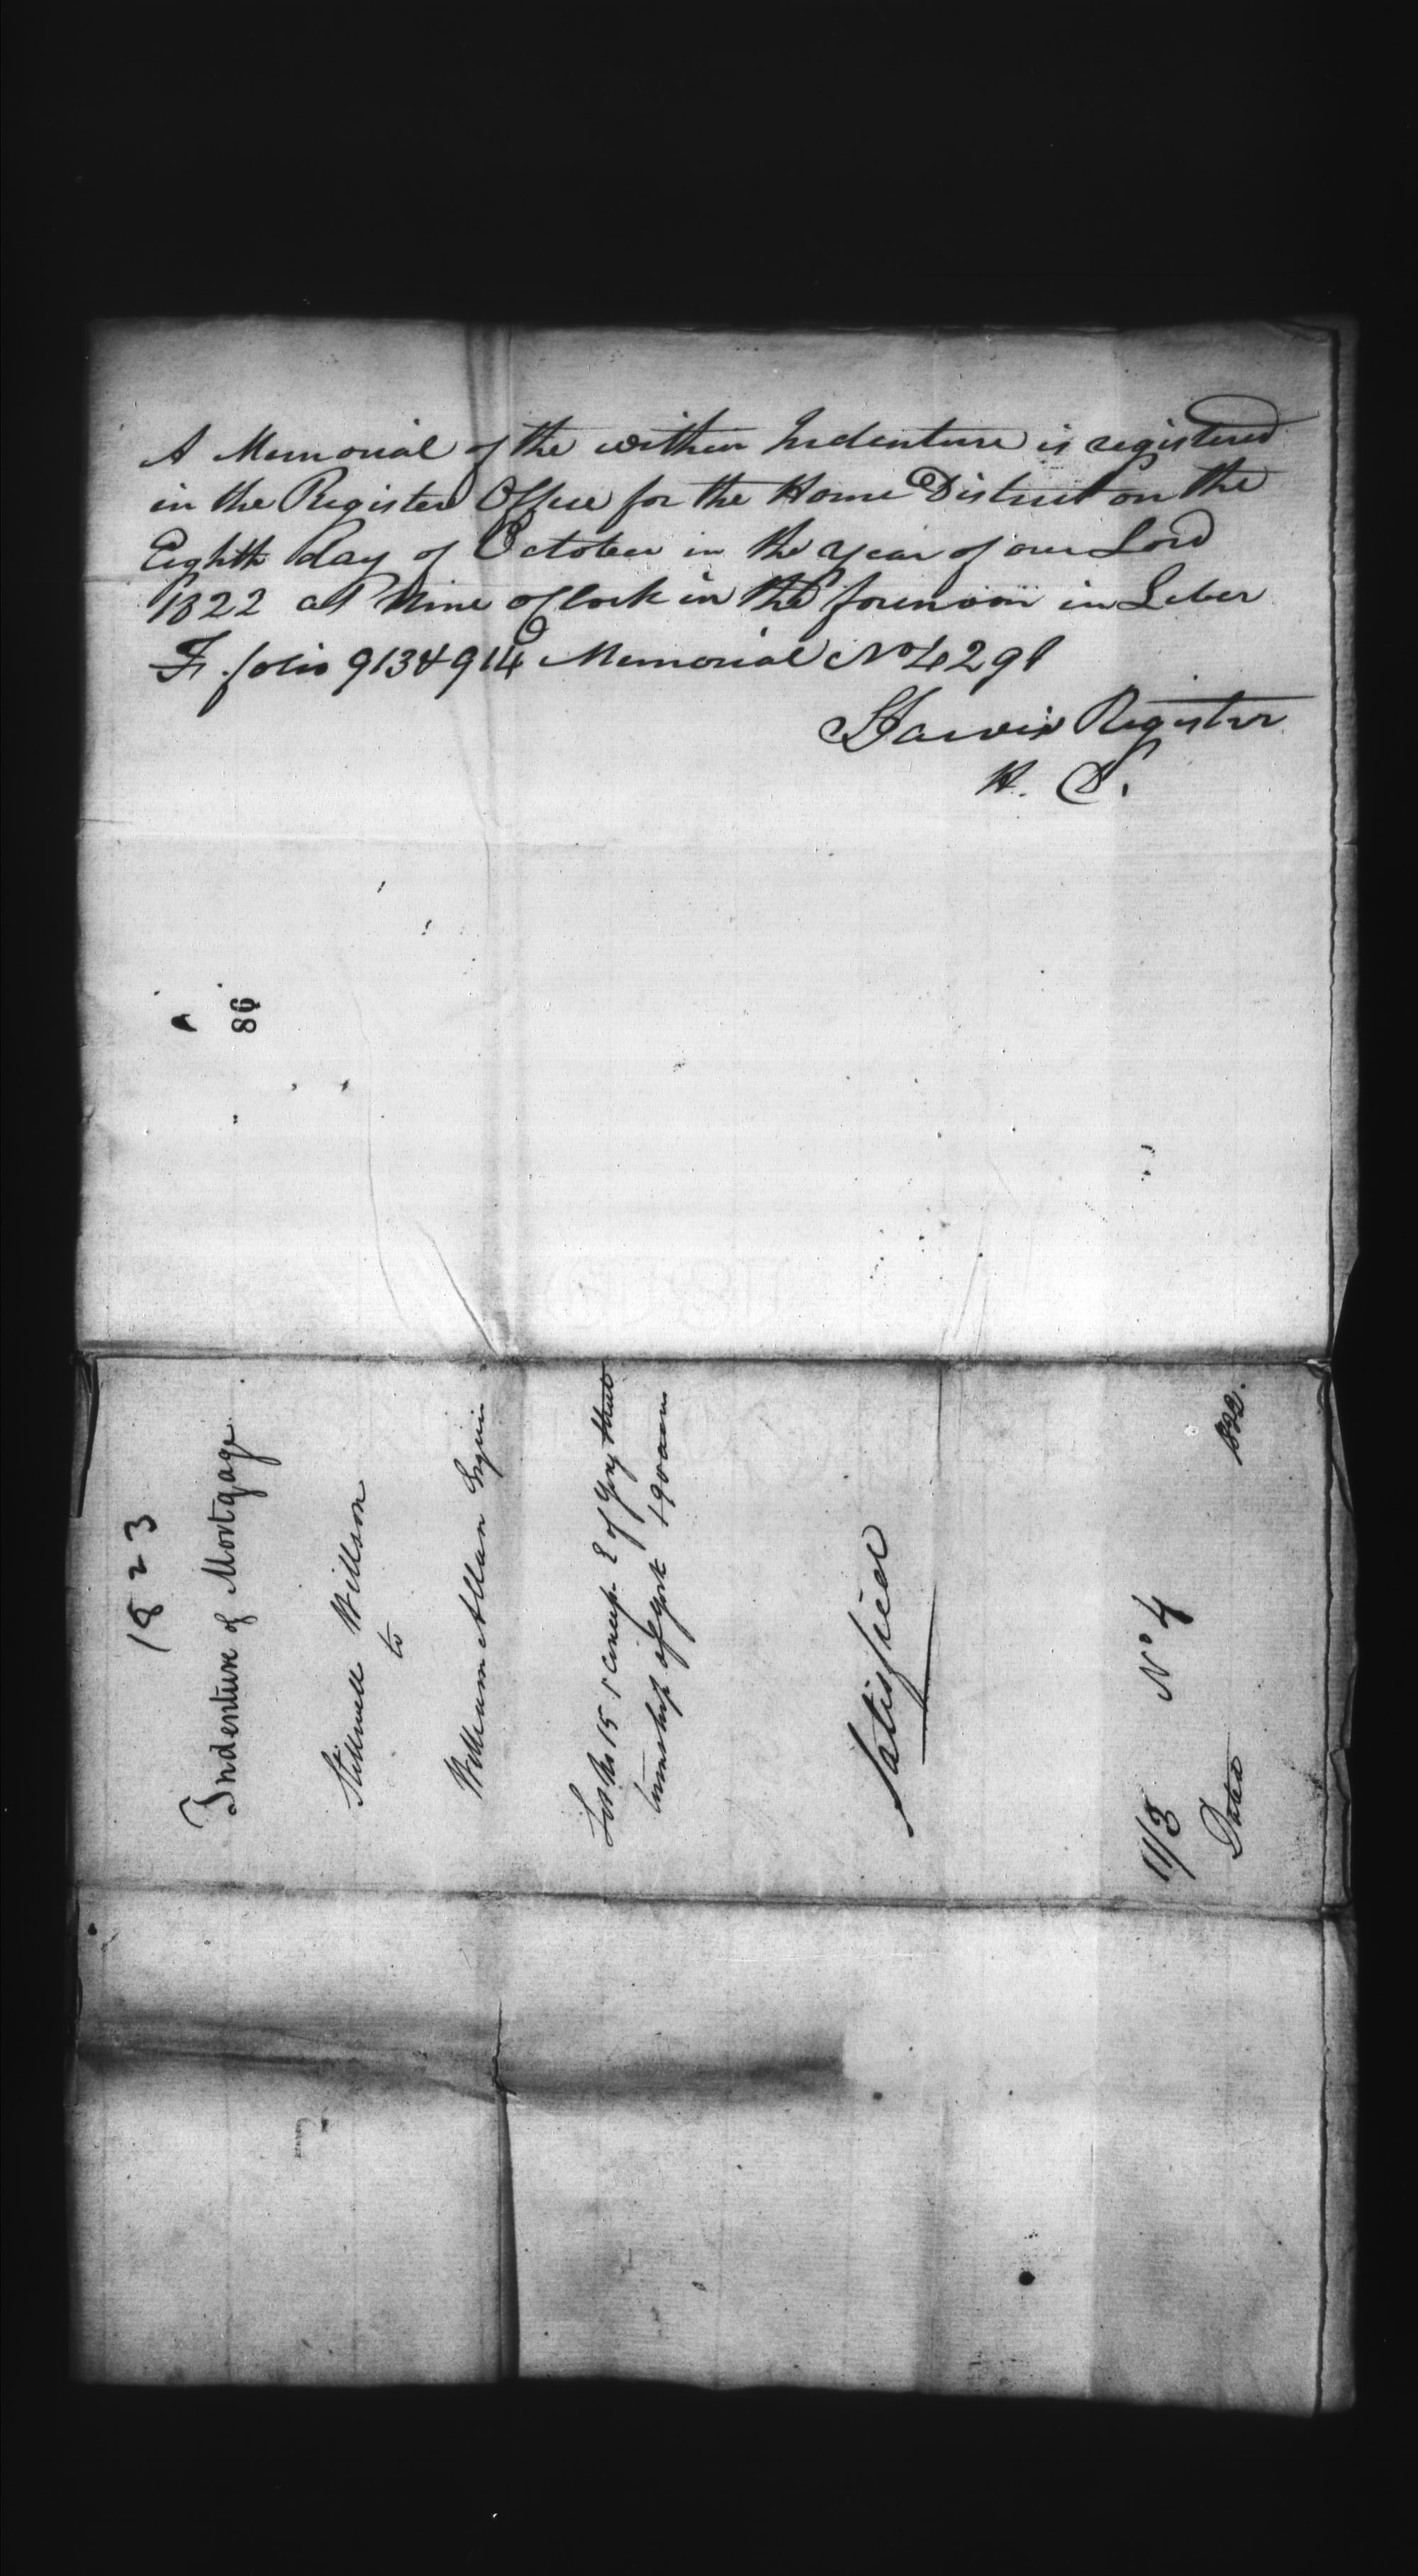 A Memorial of the within Indenture is registered
in the Register Office for the Home District on the
Eighth day of October in the year of our Lord
1822 at Nine oClock in the forenoon in Leber
F. folio 913 & 914 Memorial No 4291
SJarvis Register
H. D.
86
1823
Indenture of Mortgage.
Stillwell Willson
to
William Allan Esquire
Lot No 15 1 Concep. E of Yong
township of York 190 acres
Satisfied
11/3 No 4
Dated 1822.